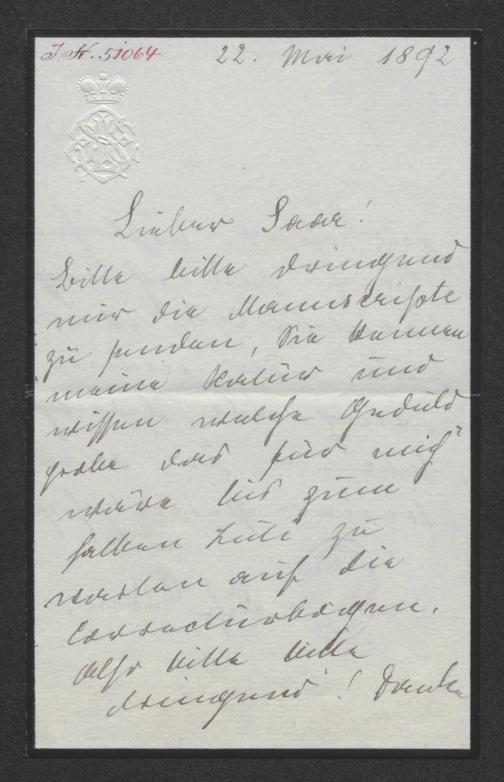 J. N. 51064
22. Mai 1892
Lieber Saar!
Bitte bitte dringend
mir die Manuscripte
zu senden, Sie kennen
meine Natur und
wissen welche Geduld
probe das für mich
wäre bis zum
halben Juli zu
warten auf die
Correcturbögen.
Also bitte bitte
dringend! Danke